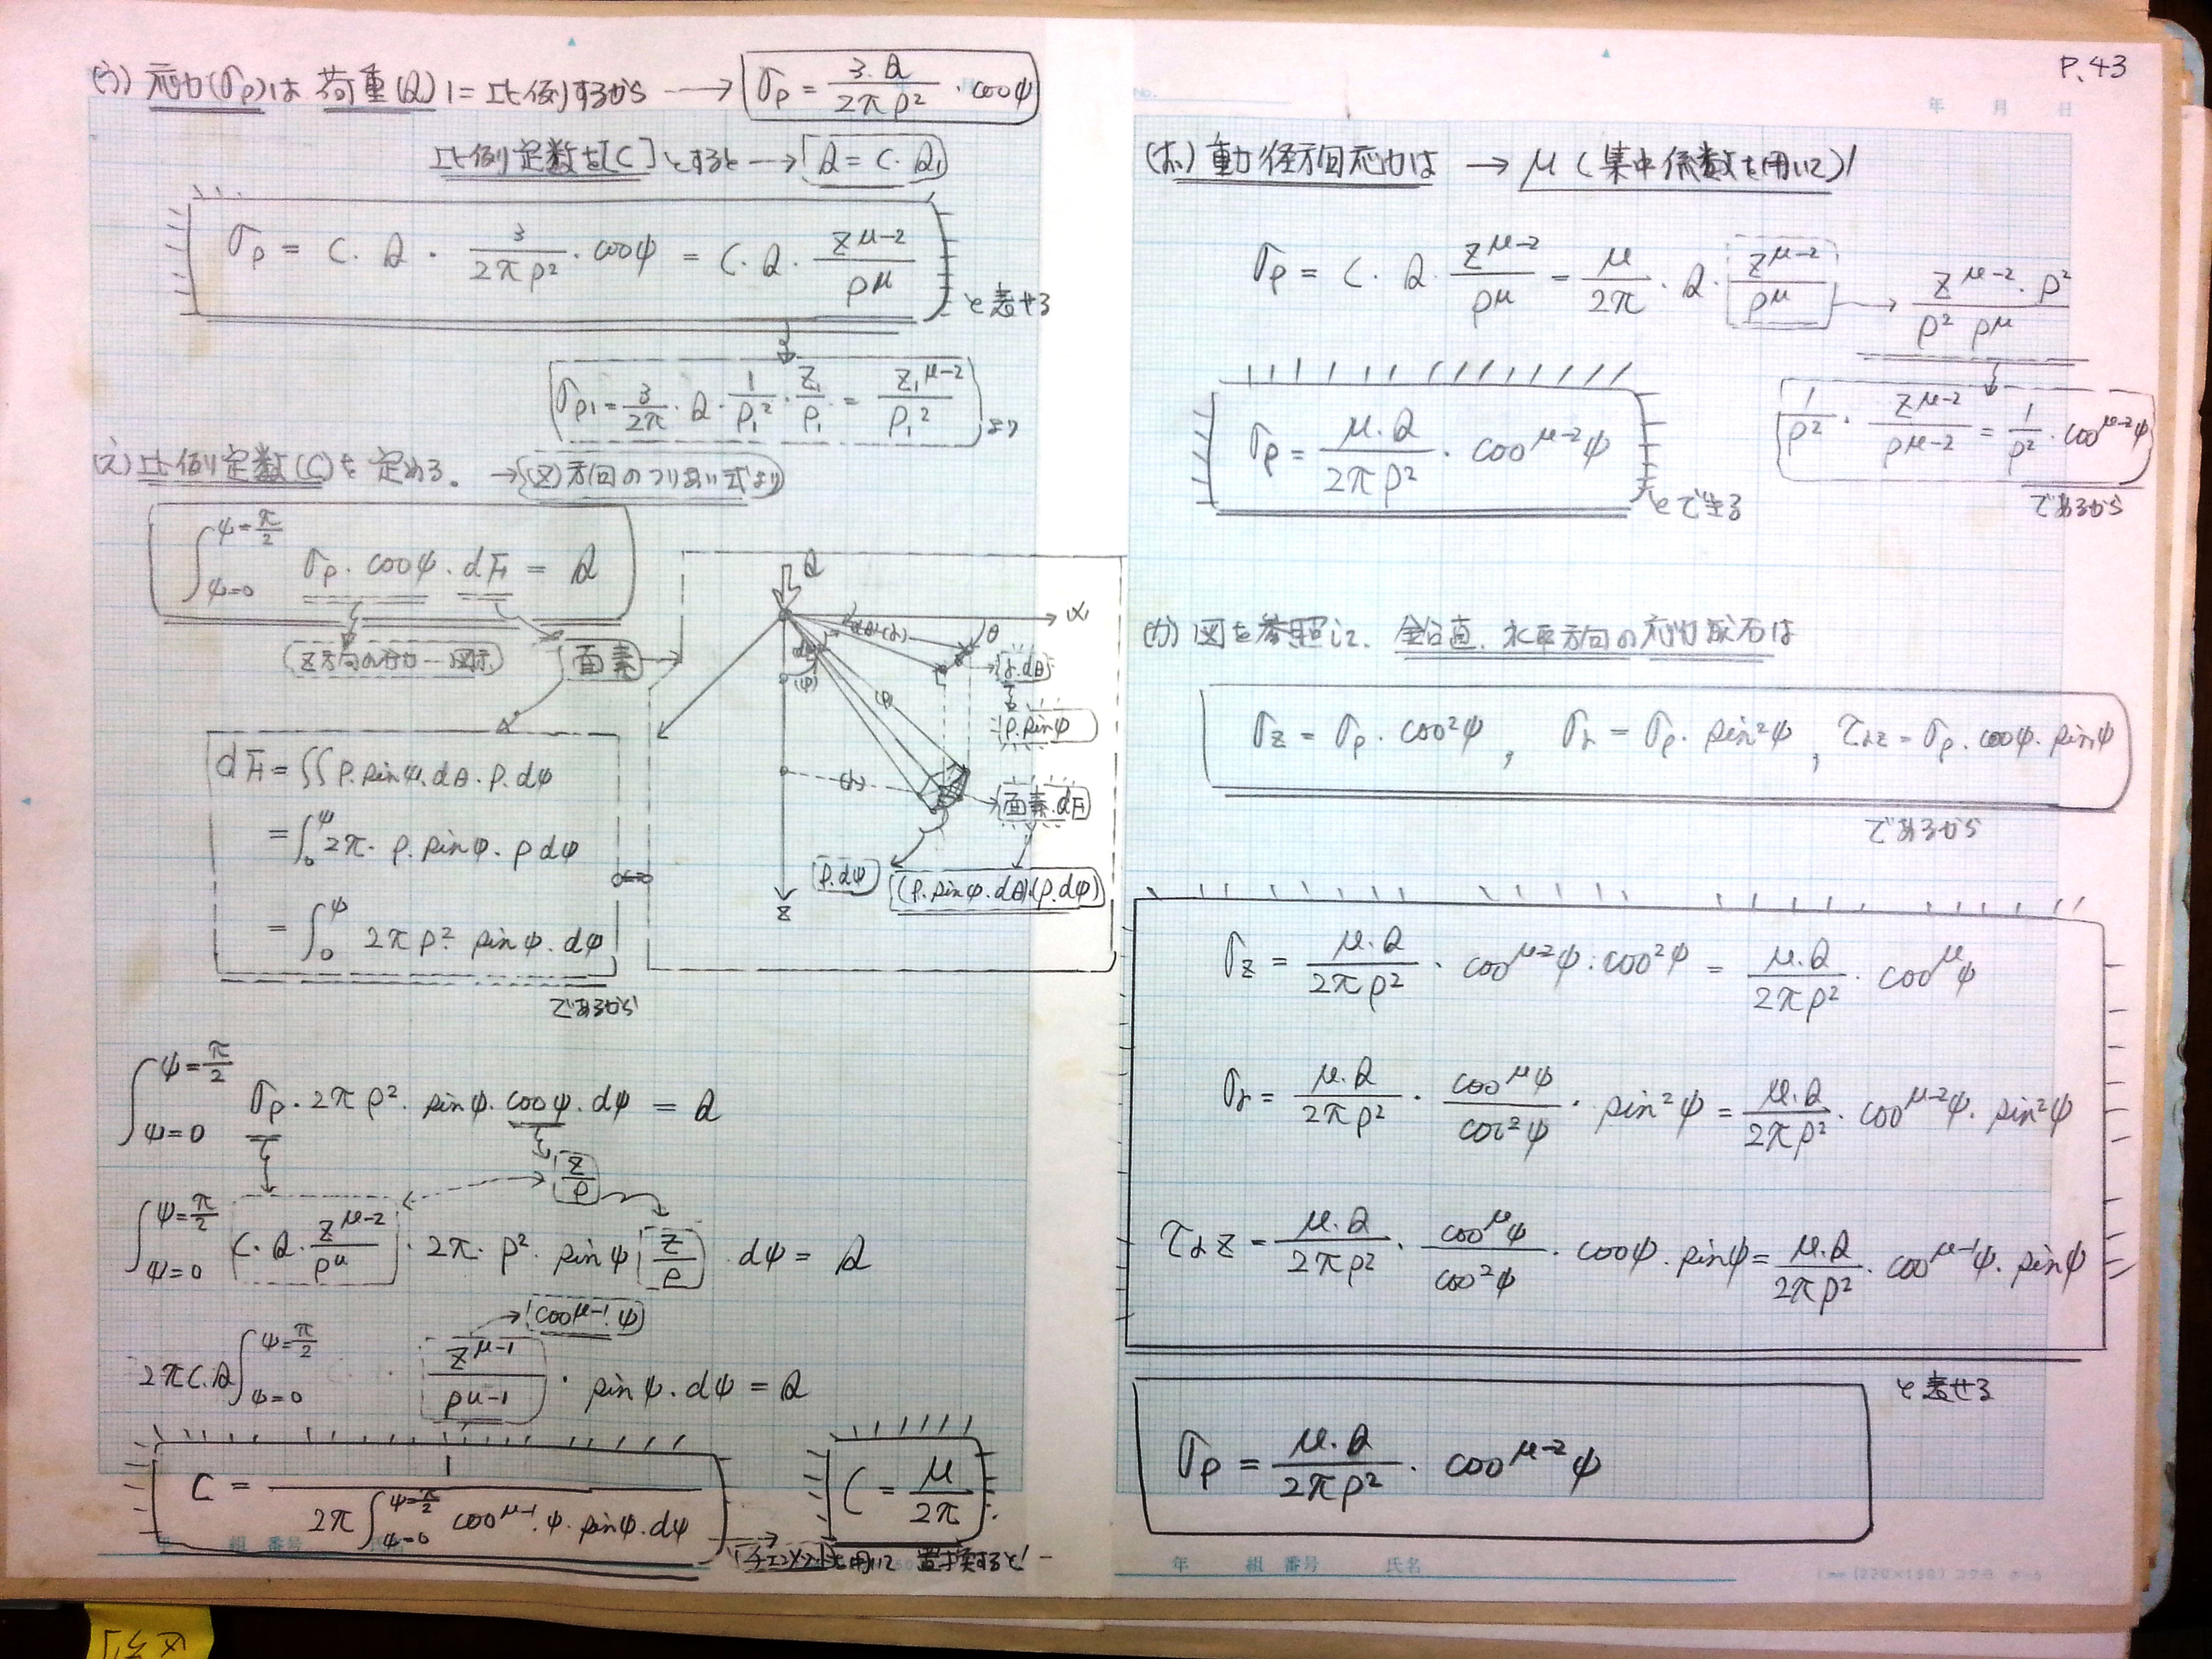 P.43
(う) 応力(σρ)は 荷重(Q)に比例するから → σρ = 3.Q / 2πρ² · cosψ
比例定数を[C]とすると → Q = C · Q₁
σρ = C · Q · 3 / 2πρ² · cosψ = C · Q · Z^(μ-2) / ρ^μ
と表せる
σρ₁ = 3/2π · Q · 1/ρ₁² · Z₁/ρ₁ = Z₁^(μ-2) / ρ₁² より
(え) 比例定数(C)を定める。 → (Z)方向のつりあい式より
∫_{ψ=0}^{ψ=π/2} σρ · cosψ · dF = Q
Z方向の分力―図示
面素
dF = ∫∫ ρ.sinψ.dθ.ρ.dψ
= ∫₀^ψ 2π. ρ. sinψ. ρdψ
= ∫₀^ψ 2πρ². sinψ. dψ
であるから
Q
θ
dθ
(r)
r.dθ
(ψ)
ρ.sinψ
(r)
面素.dF
ρ.dψ
(ρ.sinψ.dθ).(ρ.dψ)
Z
∫_{ψ=0}^{ψ=π/2} σρ · 2πρ². sinψ. cosψ. dψ = Q
Z/ρ
∫_{ψ=0}^{ψ=π/2} C · Q · Z^(μ-2) / ρ^μ · 2π · ρ² · sinψ Z/ρ · dψ = Q
cos^(μ-1).ψ
2πC.Q ∫_{ψ=0}^{ψ=π/2} Z^(μ-1) / ρ^(μ-1) · sinψ. dψ = Q
C = 1 / 2π ∫_{ψ=0}^{ψ=π/2} cos^(μ-1).ψ. sinψ. dψ
C = μ / 2π
を用いて 置換すると!
(お) 動径方向応力は → μ (集中係数を用いて)
σρ = C · Q · Z^(μ-2) / ρ^μ = μ / 2π · Q · Z^(μ-2) / ρ^μ → Z^(μ-2) · ρ² / ρ² ρ^μ
1/ρ² · Z^(μ-2) / ρ^(μ-2) = 1/ρ² · cos^(μ-2)ψ
であるから
σρ = μ.Q / 2πρ² · cos^(μ-2)ψ
とできる
(か) 図を参照して、鉛直、水平方向の応力成分は
σz = σρ · cos²ψ , σr = σρ · sin²ψ , τrz = σρ . cosψ . sinψ
であるから
σz = μ.Q / 2πρ² · cos^(μ-2)ψ . cos²ψ = μ.Q / 2πρ² · cos^μ ψ
σr = μ.Q / 2πρ² · cos^μ ψ / cos²ψ · sin²ψ = μ.Q / 2πρ² · cos^(μ-2)ψ. sin²ψ
τrz = μ.Q / 2πρ² · cos^μ ψ / cos²ψ · cosψ . sinψ = μ.Q / 2πρ² · cos^(μ-1)ψ. sinψ
と表せる
σρ = μ.Q / 2πρ² · cos^(μ-2)ψ
No.
年 月 日
組 番号
年 組 番号 氏名